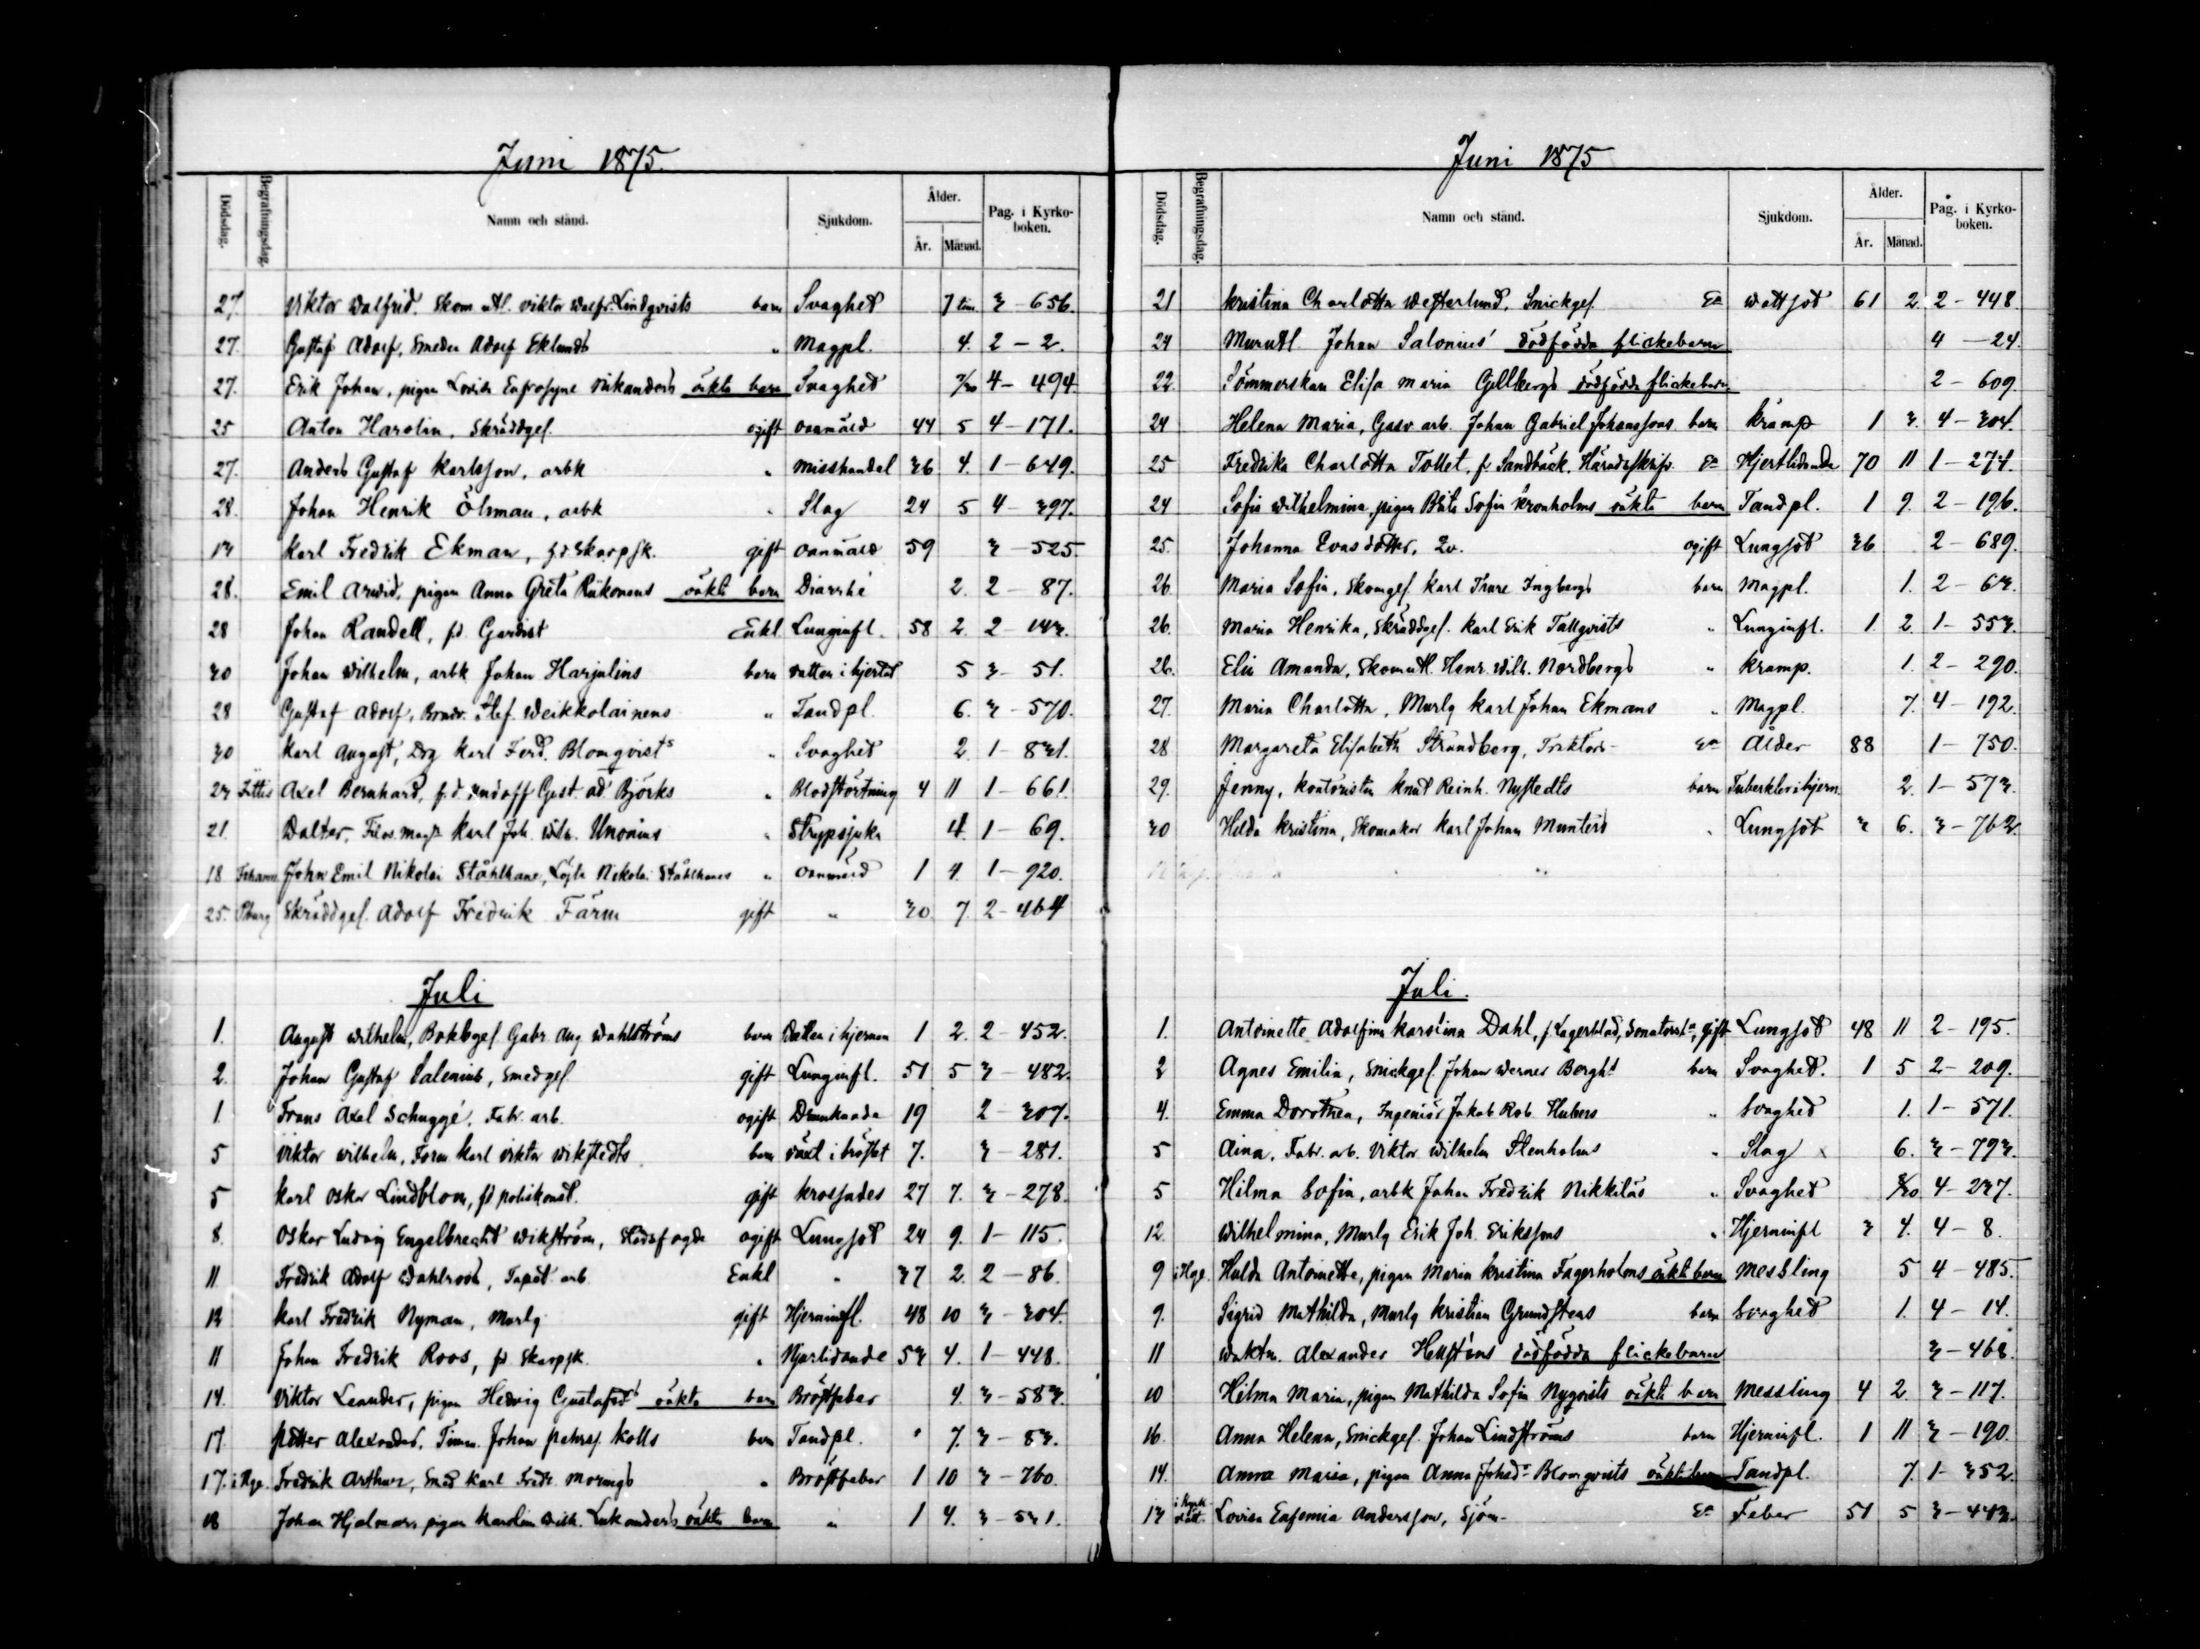 Juni 1875.
Dödsdag. Begrafningsdag. Namn och stånd. Sjukdom. Ålder. År. Månad. Pag. i Kyrko-boken.
27. Viktor Walfrid. Skom utl. Viktor Walfr. Lindqvists barn Svaghet 7 tim 3 - 656.
27. Gustaf Adolf, Smeden Adolf Eklunds " Magpl. 4. 2 - 2.
27. Erik Johan, pigan Lovisa Eufrosyne Nikanders oäkta barn Svaghet 7/30 4 - 494
25 Anton Harolin, Skräddgef. ogift oanmäld 44 5 4 - 171.
27. Anders Gustaf Karlsson, arbk " Misshandel 36 4. 1 - 649.
28. Johan Henrik Öhman, arbk " Slag 24 5 4 - 397.
13 Karl Fredrik Ekman, f.d. Skarpsk. gift oanmäld 59 3 - 525.
28. Emil Arvid, pigan Anna Greta Riikonens oäkta barn Diarrhé 2. 2 - 87.
28 Johan Randell, fd. Gardist Enkl. Lunginfl. 58 2. 2 - 143.
30 Johan Wilhelm, arbk Johan Harjulins barn vatten i hjertat 5 3 - 51.
28 Gustaf Adolf, Stef. Weikkolainens " Tandpl. 6. 3 - 570.
30 Karl August, Drg Karl Ferd. Blomqvists " Svaghet 2. 1 - 831.
23 Axel Bernhard, f.d. undoff Gust. Ad Björks " Blodstörtning 4 11 1 - 661.
21. Valter, Filos. mag. Karl Joh. Wilh. Unonius " Strypsjuka 4. 1 - 69.
18 John Emil Nikolai Stålhane, Nikolai Stålhanes " oanmäld 1 4. 1 - 920.
25. Pburg Skräddgef. Adolf Fredrik Färm gift " 30 7. 2 - 464
Juli
1. August Wilhelm, Bokbgef. Gabr. Aug. Wahlströms barn Vatten i hjernan 1 2. 2 - 452.
2. Johan Gustaf Salenius, Smedgef. gift Lunginfl. 51 5 3 - 482.
1. Frans Axel Schuggé, Fabr. arb. ogift Drunknade 19 2 - 307.
5 Viktor Wilhelm, Form Karl Viktor Wikstedts barn växt i bröstet 7. 3 - 281.
5 Karl Oskar Lindblom, fd poliskonst. gift krossades 27 7. 3 - 278.
8. Oskar Ludvig Engelbrecht Wikström, Stadsfogde ogift Lungsot 24 9. 1 - 115.
11 Fredrik Adolf Dahlroos, Tapet. arb. Enkl " 37 2. 2 - 86.
13 Karl Fredrik Nyman, Murlg gift Hjerninfl. 48 10 3 - 304.
11 Johan Fredrik Roos, fd Skarpsk. " Hjertlidande 53 4. 1 - 448.
14. Viktor Leander, pigan Hedvig Gustafsds oäkta barn Bröstfeber 4. 3 - 583.
17. Petter Alexander, Timm. Johan Kolls barn Tandpl. " 7. 3 - 83.
17. i Hge. Fredrik Arthur, Smed Karl Fredr. Morings " Bröstfeber 1 10 3 - 760.
18 Johan Hjalmar, pigan Karolina Wilh. Lukanders oäkta barn " 1 4. 3 - 531.
Juni 1875
Dödsdag. Begrafningsdag. Namn och stånd. Sjukdom. Ålder. År. Månad. Pag. i Kyrko-boken.
21 Kristina Charlotta Westerlund, Snickgef. Ea Wattsot 61 2. 2 - 448.
24 Murutl. Johan Salonius' dödfödda flickebarn 4 - 24.
22. Sömmerskan Elisa Maria Gellbergs dödfödda flickebarn 2 - 609
24 Helena Maria, Gasv. arb. Johan Gabriel Johanssons barn Kramp 1 3. 4 - 304.
25 Fredrika Charlotta Tollet, f. Sandbäck, Häradsskrifv. Ea Hjertlidande 70 11 1 - 274.
24 Sofia Wilhelmina, pigan Brita Sofia Kronholms oäkta barn Tandpl. 1 9. 2 - 196.
25. Johanna Evasdotter, Qv. ogift Lungsot 36 2 - 689.
26 Maria Sofia, Skomgef. Karl Ture Ingbergs barn Magpl. 1. 2 - 63.
26. Maria Henrika, Skräddgef. Karl Erik Tallqvists " Lunginfl. 1. 2. 1 - 553.
26. Elin Amanda, Skomutl. Henr. Wilh. Nordbergs " Kramp. 1. 2 - 290.
27. Maria Charlotta, Murlg Karl Johan Ekmans " Magpl. 7. 4 - 192.
28 Margareta Elisabeth Strandberg, Traktörs- Ea Ålder 88 1 - 750.
29. Jenny, Kontoristen Knut Reinh. Nystedts barn Tuberkler i hjern. 2. 1 - 573.
30 Hilda Kristina, Skomakar Karl Johan Munters " Lungsot 3 6. 3 - 762.
Juli.
1. Antoinette Adolfina Karolina Dahl, f. Lagerblad, gift Lungsot 48 11 2 - 195.
2 Agnes Emilia, Snickgef. Johan Werner Berghs barn Svaghet. 1 5 2 - 209.
4. Emma Dorothea, Ingeniör Jakob Rob. Hubers " Svaghet 1. 1 - 571.
5 Aina, Fabr. arb. Viktor Wilhelm Stenholms " Slag 6. 3 - 793.
5 Hilma Sofia, arbk Johan Fredrik Nikkiläs " Svaghet 8/30 4 - 237.
12. Wilhelmina, Murlg Erik Joh. Erikssons " Hjerninfl 3 4. 4 - 8.
9 i Hge. Hulda Antoinette, pigan Maria Kristina Fagerholms oäkta barn Messling 5 4 - 485.
9. Sigrid Mathilda, Murlg Kristian Grundstens barn Svaghet 1. 4 - 14.
11 Waktm. Alexander Hellsténs dödfödda flickebarn 3 - 468.
10 Hilma Maria, pigan Mathilda Sofia Nyqvists oäkta barn Messling 4 2. 3 - 117.
16. Anna Helena, Snickgef. Johan Lindströms barn Hjerninfl. 1 11 3 - 190.
14. Anna Maria, pigan Anna Johsds Blomqvists oäkta barn Tandpl. 7. 1 - 352.
13 Lovisa Eufemia Andersson, Sjöm- Ea Feber 51 5 3 - 443.